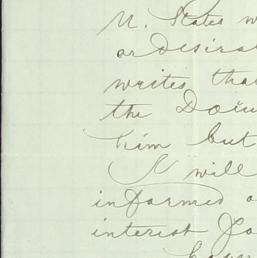 U. States w
or desira
writes tha
the Dou
him but
I will
informed o
interest Jo